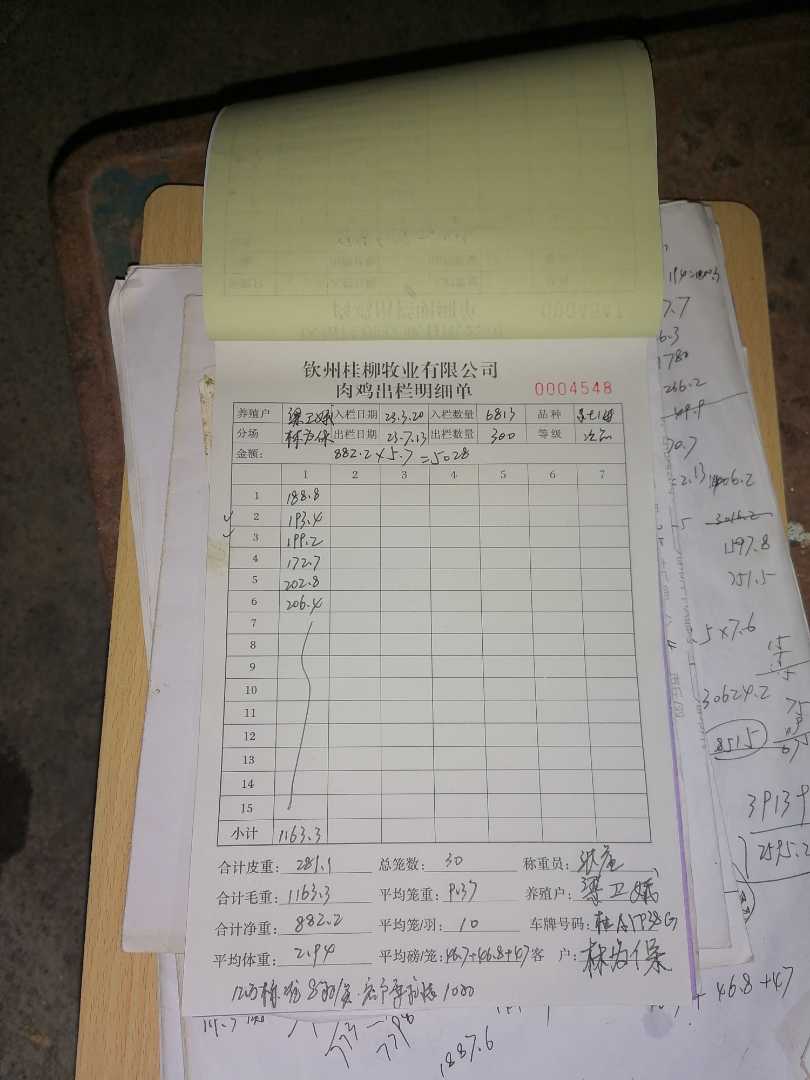 钦州桂柳牧业有限公司
肉鸡出栏明细单 0004548
养殖户 梁卫娥 入栏日期 23.3.20 入栏数量 6813 品种
分场 林为保 出栏日期 23.7.13 出栏数量 300 等级 次品
金额: 882.2×5.7=5028
1 2 3 4 5 6 7
1 188.8
2 193.4
3 199.2
4 172.7
5 202.8
6 206.4
7
8
9
10
11
12
13
14
15
小计 1163.3
合计皮重: 281.1 总笼数: 30 称重员:
合计毛重: 1163.3 平均笼重: 9.37 养殖户: 梁卫娥
合计净重: 882.2 平均笼/羽: 10 车牌号码:
平均体重: 2.94 平均磅/笼: 46.7+46.8+47 客户: 林为保
+46.8+47
1887.6
7.7
6.3
1780
236.2
30.7
2.13
06.2
3016.2
1597.8
251.5
5×7.6
30624.2
8515
75
675
3913.9
2595.2